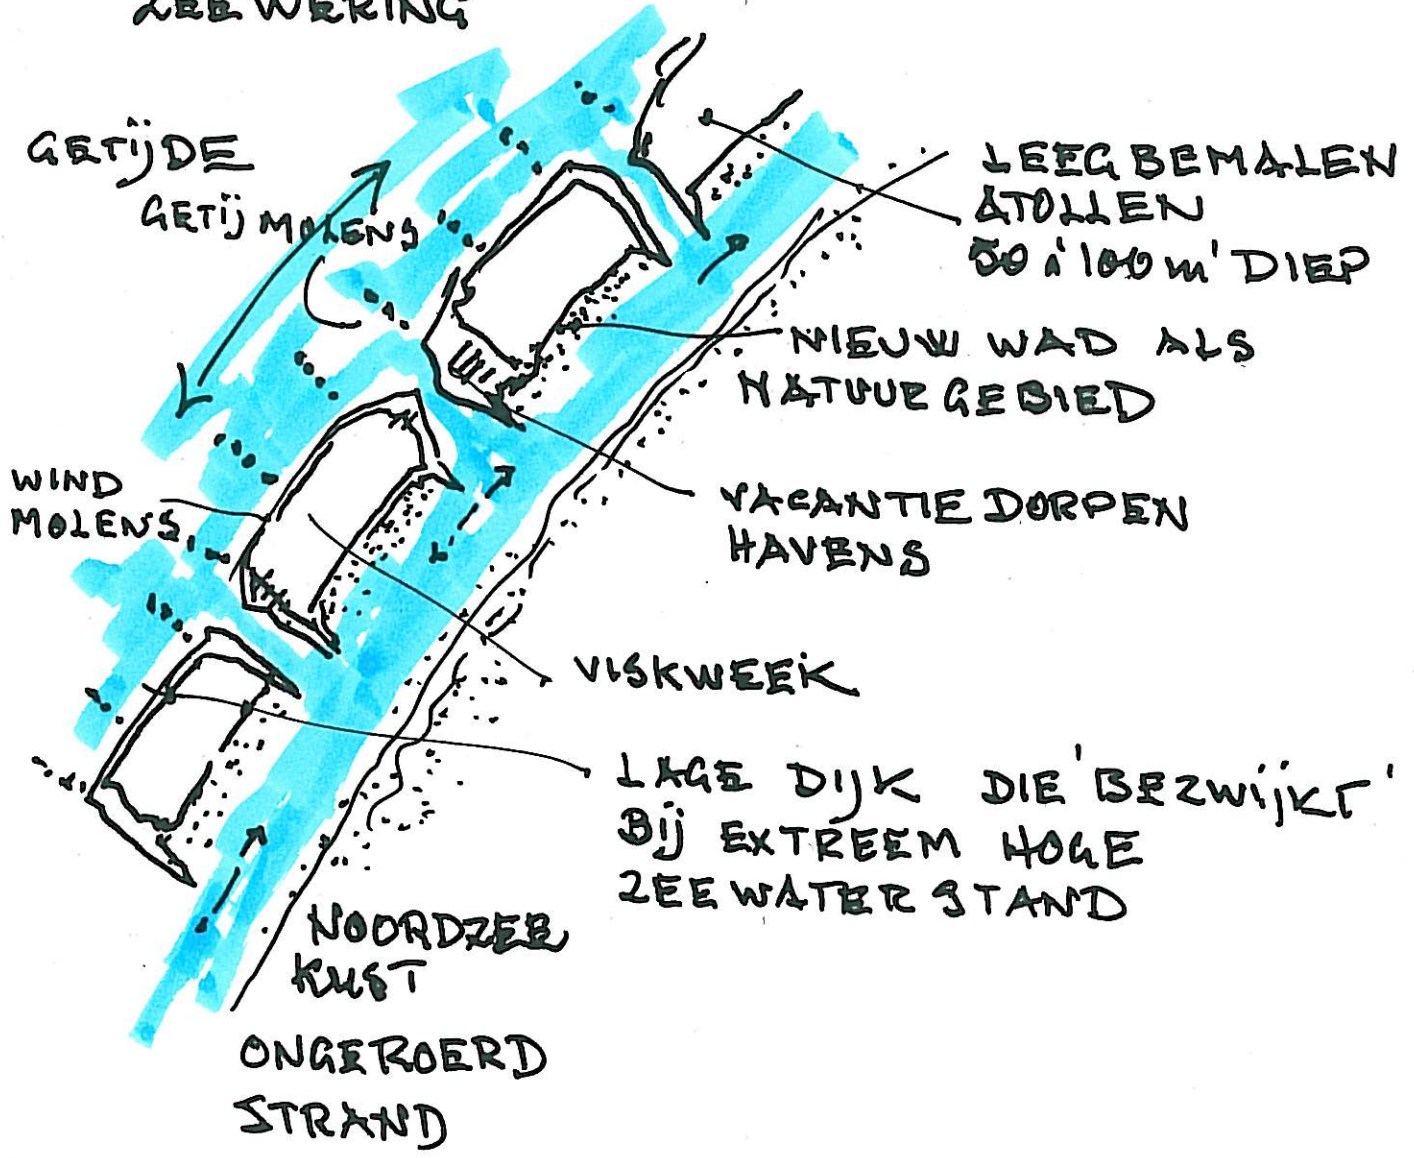 ZEEWERING
GETIJDE
GETIJ MOLENS
LEEGBEMALEN
ATOLLEN
50 à 100 m' DIEP
NIEUW WAD ALS
NATUURGEBIED
WIND
MOLENS
VACANTIE DORPEN
HAVENS
VISKWEEK
LAGE DIJK DIE 'BEZWIJKT'
BIJ EXTREEM HOGE
ZEEWATERSTAND
NOORDZEE
KUST
ONGEROERD
STRAND